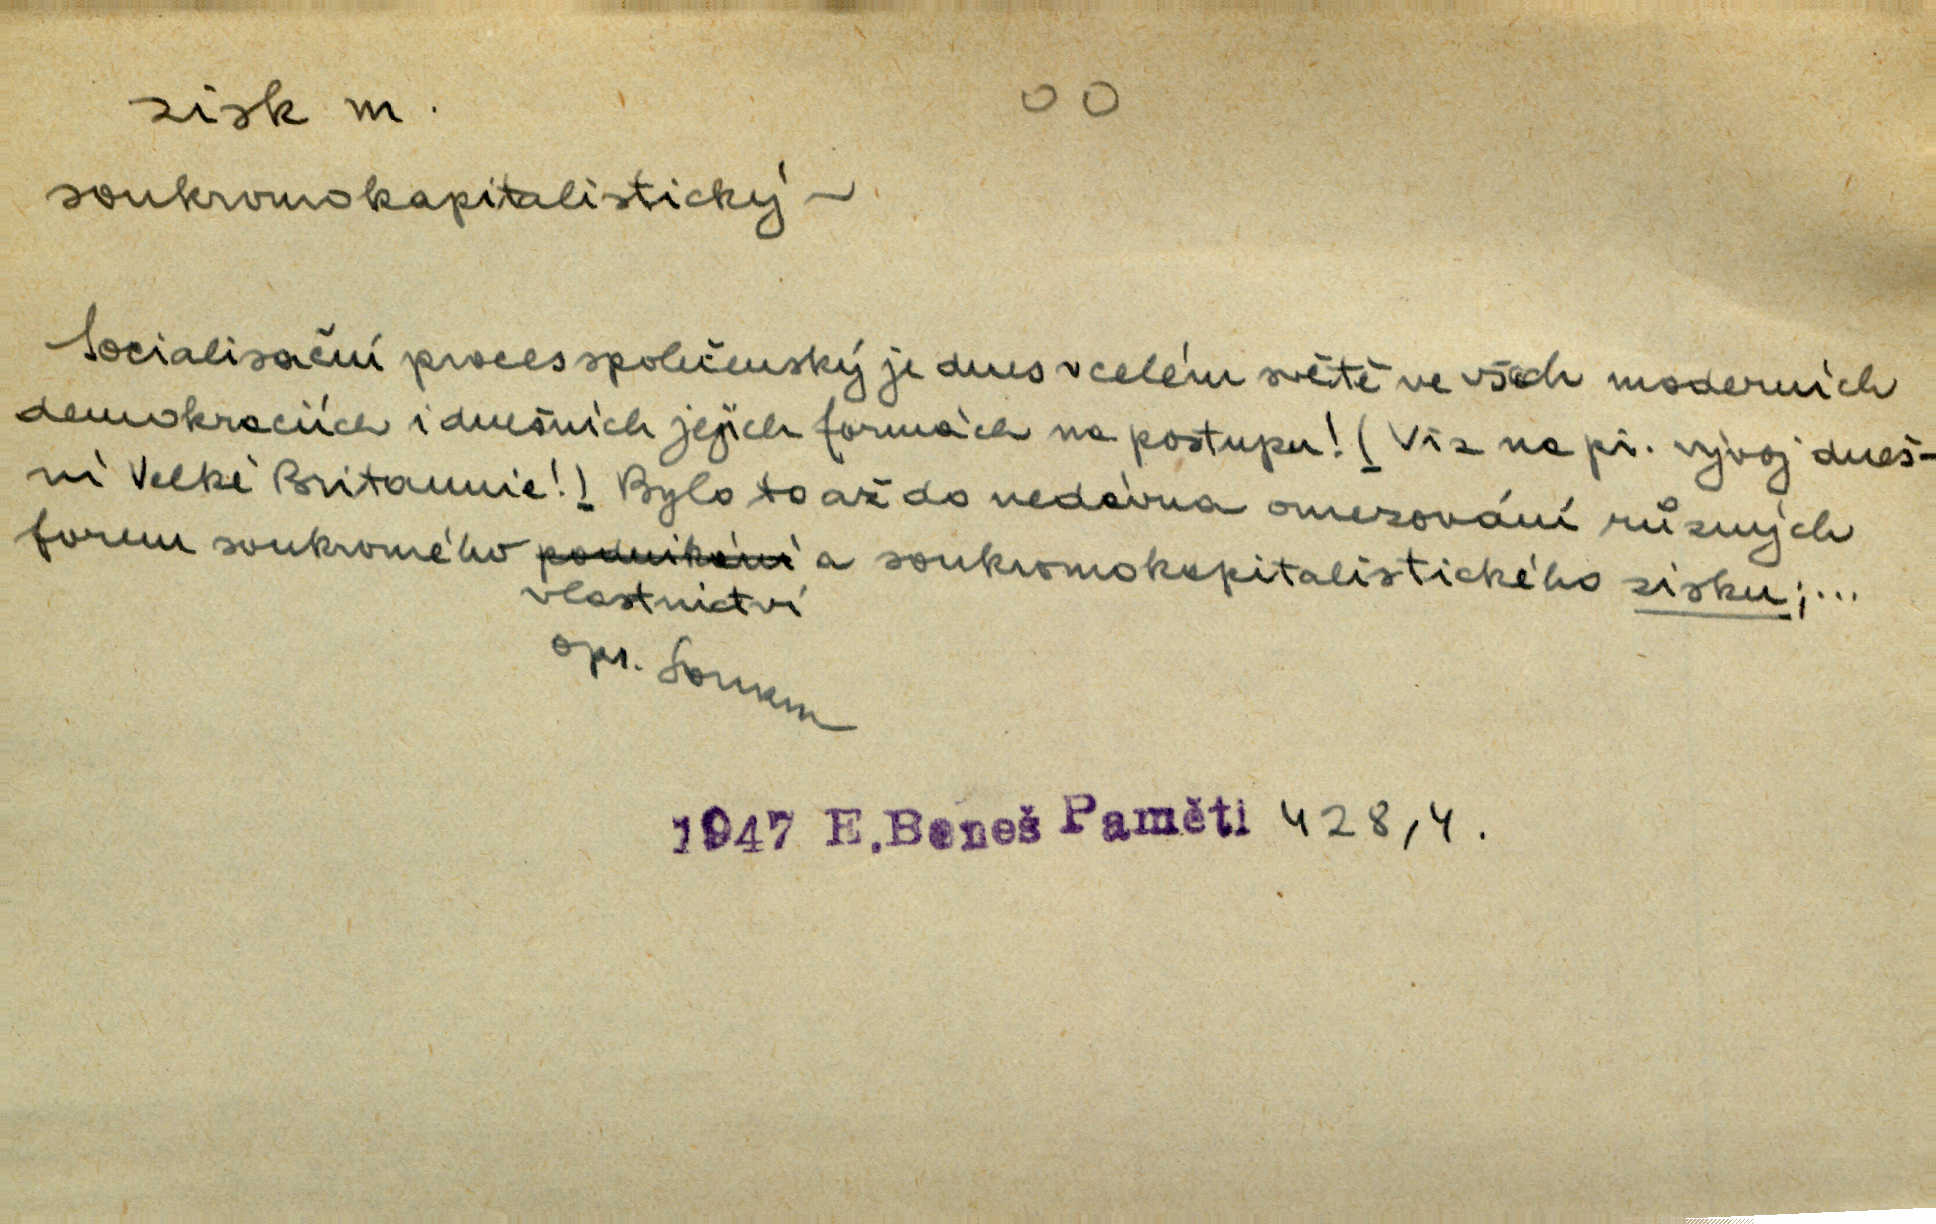 zisk m.
OO
soukromokapitalistický ~
Socialisační proces společenský je dnes v celém světě ve všech moderních
demokraciích i dnešních jejich formách na postupu! (Viz na př. vývoj dneš-
ní Velké Britannie!) Bylo to až do nedávna omezování různých
forem soukromého podnikání a soukromokapitalistického zisku;...
vlastnictví
opr.
1947 E.Beneš Paměti 428,4.